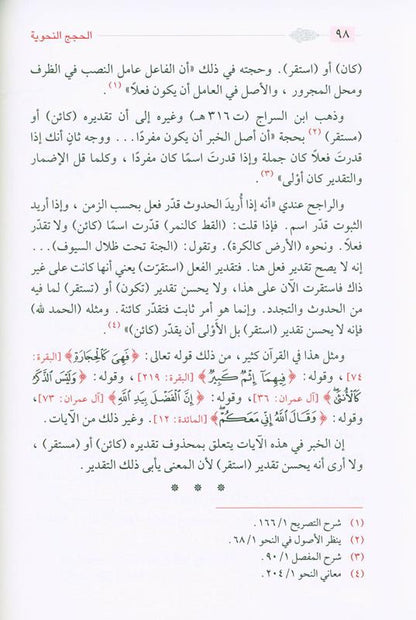 ٩٨ الحجج النحوية
(كان) أو (استقر). وحجته في ذلك «أن الفاعل عامل النصب في الظرف
ومحل المجرور، والأصل في العامل أن يكون فعلاً» (١).
وذهب ابن السراج (ت٣١٦هـ) وغيره إلى أن تقديره (كائن) أو
(مستقر) (٢) بحجة «أن أصل الخبر أن يكون مفردًا... ووجه ثانٍ أنك إذا
قدرتَ فعلًا كان جملة وإذا قدرتَ اسمًا كان مفردًا، وكلما قل الإضمار
والتقدير كان أولى» (٣).
والراجح عندي «أنه إذا أُريدَ الحدوث قدّر فعل بحسب الزمن، وإذا أريد
الثبوت قدّر اسم. فإذا قلت: (القط كالنمر) قدرت اسمًا (كائن) ولا تقدّر
فعلًا. ونحوه (الأرض كالكرة). وتقول: (الجنة تحت ظلال السيوف)...
إنه لا يصح تقدير فعل هنا. فتقدير الفعل (استقرّت) يعني أنها كانت على غير
ذاك فاستقرت الآن على هذا، ولا يحسن تقدير (تكون) أو (تستقر) لما فيه
من الحدوث والتجدد. وإنما هو أمر ثابت فتقدّر كائنة. ومثله (الحمد لله)
فإنه لا يحسن تقدير (استقر) بل الأَوْلى أن يقدّر (كائن)» (٤).
ومثل هذا في القرآن كثير، من ذلك قوله تعالى: ﴿فَهِىَ كَالْحِجَارَةِ﴾ [البقرة:
٧٤]، وقوله: ﴿فِيهِمَآ إِثْمٌ كَبِيرٌ﴾ [البقرة: ٢١٩]، وقوله: ﴿وَلَيْسَ الذَّكَرُ
كَالْأُنثَىٰ﴾ [آل عمران: ٣٦]، وقوله: ﴿إِنَّ الْفَضْلَ بِيَدِ اللَّهِ﴾ [آل عمران: ٧٣]،
وقوله: ﴿وَقَالَ اللَّهُ إِنِّى مَعَكُمْ﴾ [المائدة: ١٢]. وغير ذلك من الآيات.
إن الخبر في هذه الآيات يتعلق بمحذوف تقديره (كائن) أو (مستقر)،
ولا أرى أنه يحسن تقدير (استقر) لأن المعنى يأبى ذلك التقدير.
* * *
(١) شرح التصريح ١/١٦٦.
(٢) ينظر الأصول في النحو ١/٦٨.
(٣) شرح المفصل ١/٩٠.
(٤) معاني النحو ١/٢٠٤.